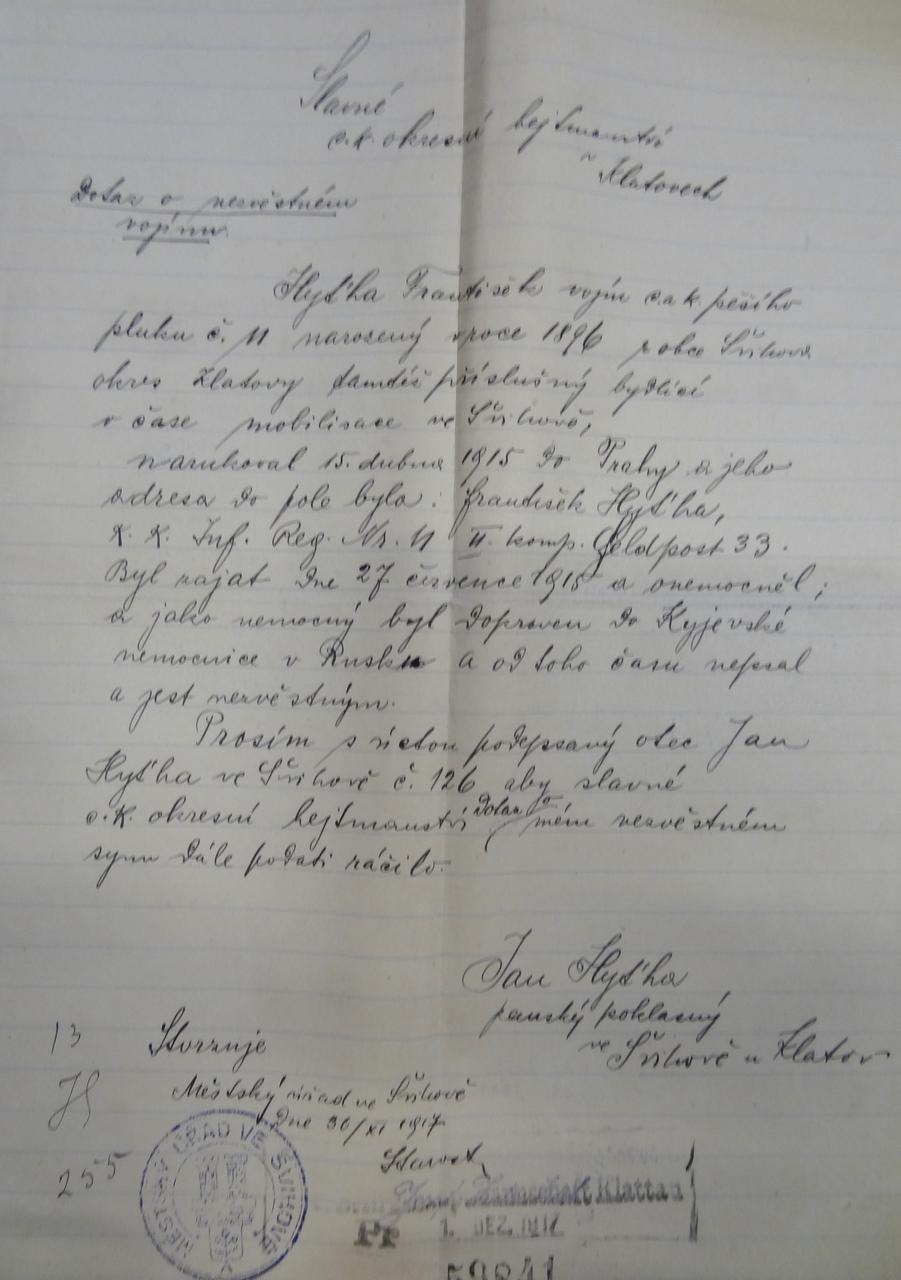 Slavné
c.k. okresní hejtmanství
v Klatovech
Dotaz o nezvěstném
vojínu.
Hyťha František vojín c. a k. pěšího
pluku č. 11 narozený vroce 1896 z obce Švihova
okres Klatovy tamtéž příslušný bydlící
v čase mobilisace ve Švihově,
narukoval 15. dubna 1915 do Prahy a jeho
adresa do pole byla: František Hyťha,
K. K. Inf. Reg. Nr. 11 II. komp. Feldpost 33.
Byl zajat dne 27 července 1915 a onemocněl;
a jako nemocný byl dopraven do Kyjevské
nemocnice v Rusku a od toho času nepsal
a jest nezvěstným.
Prosím s úctou podepsaný otec Jan
Hyťha ve Švihově č. 126 aby slavné
c.k. okresní hejtmanství dotaz o mém nezvěstném
synu dále podati ráčilo.
Jan Hyťha
panský poklasný
ve Švihově u Klatov
13
Stvrzuje
Městský úřad ve Švihově
dne 30/XI 1917
255
Starosta
MĚSTSKÝ ÚŘAD VE ŠVIHOVĚ
Klattau
Pr 1. DEZ. 1917
59841